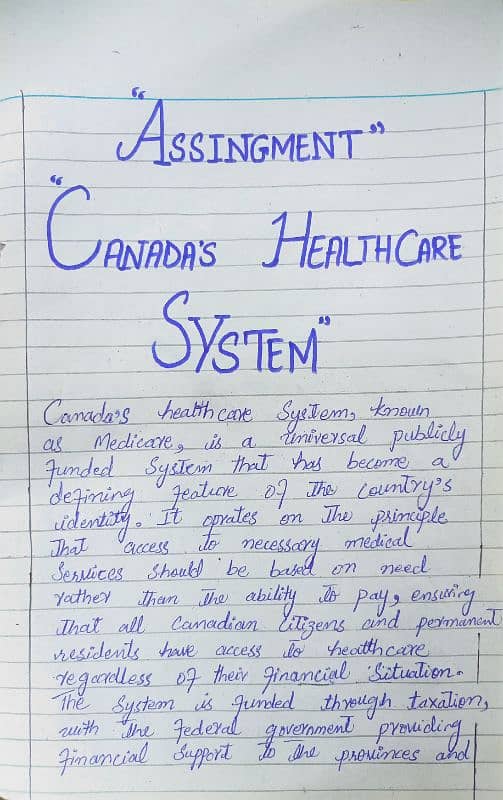 "ASSINGMENT"
"CANADA'S HEALTHCARE
SYSTEM"
Canada's healthcare System, known
as Medicare, is a universal publicly
funded System that has become a
defining feature of the country's
identity. It oprates on the principle
that access to necessary medical
Services should be based on need
rather than the ability to pay, ensuring
that all Canadian citizens and permanent
residents have access to healthcare
regardless of their financial Situation.
The System is funded through taxation,
with the federal government providing
financial support to the provinces and